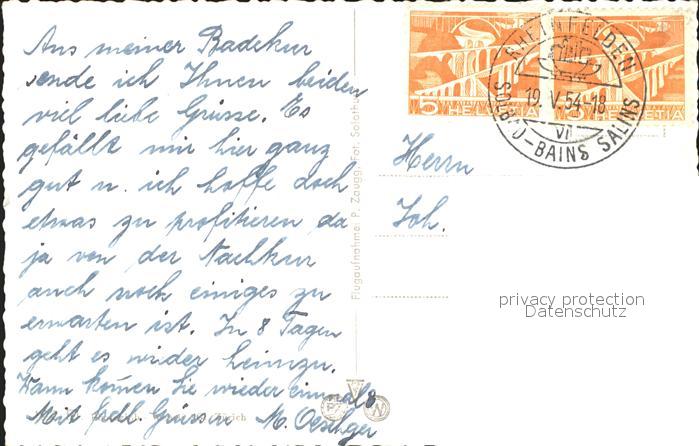 Aus meiner Badekur
sende ich Ihnen beiden
viel liebe Grüsse. Es
gefällt mir hier ganz
gut u. ich hoffe doch
etwas zu profitieren da
ja von der Nachkur
auch noch einiges zu
erwarten ist. In 8 Tagen
geht es wieder heimzu.
Wann kom̄en Sie wieder einmal?
Mit frdl. Grüssen M.
Flugaufnahme: P. Zaugg, Fot. Solothurn
5 HELVETIA
5 HELVETIA
RHEINFELDEN
19. V. 54-18
VII
SOLBAD-BAINS SALINS
Herrn
Joh.
privacy protection
Datenschutz
Zürich